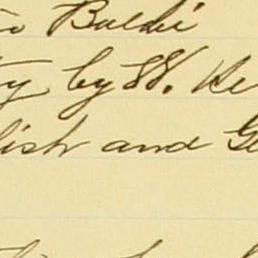 o Baldi
ty by W. He
lish and Ge